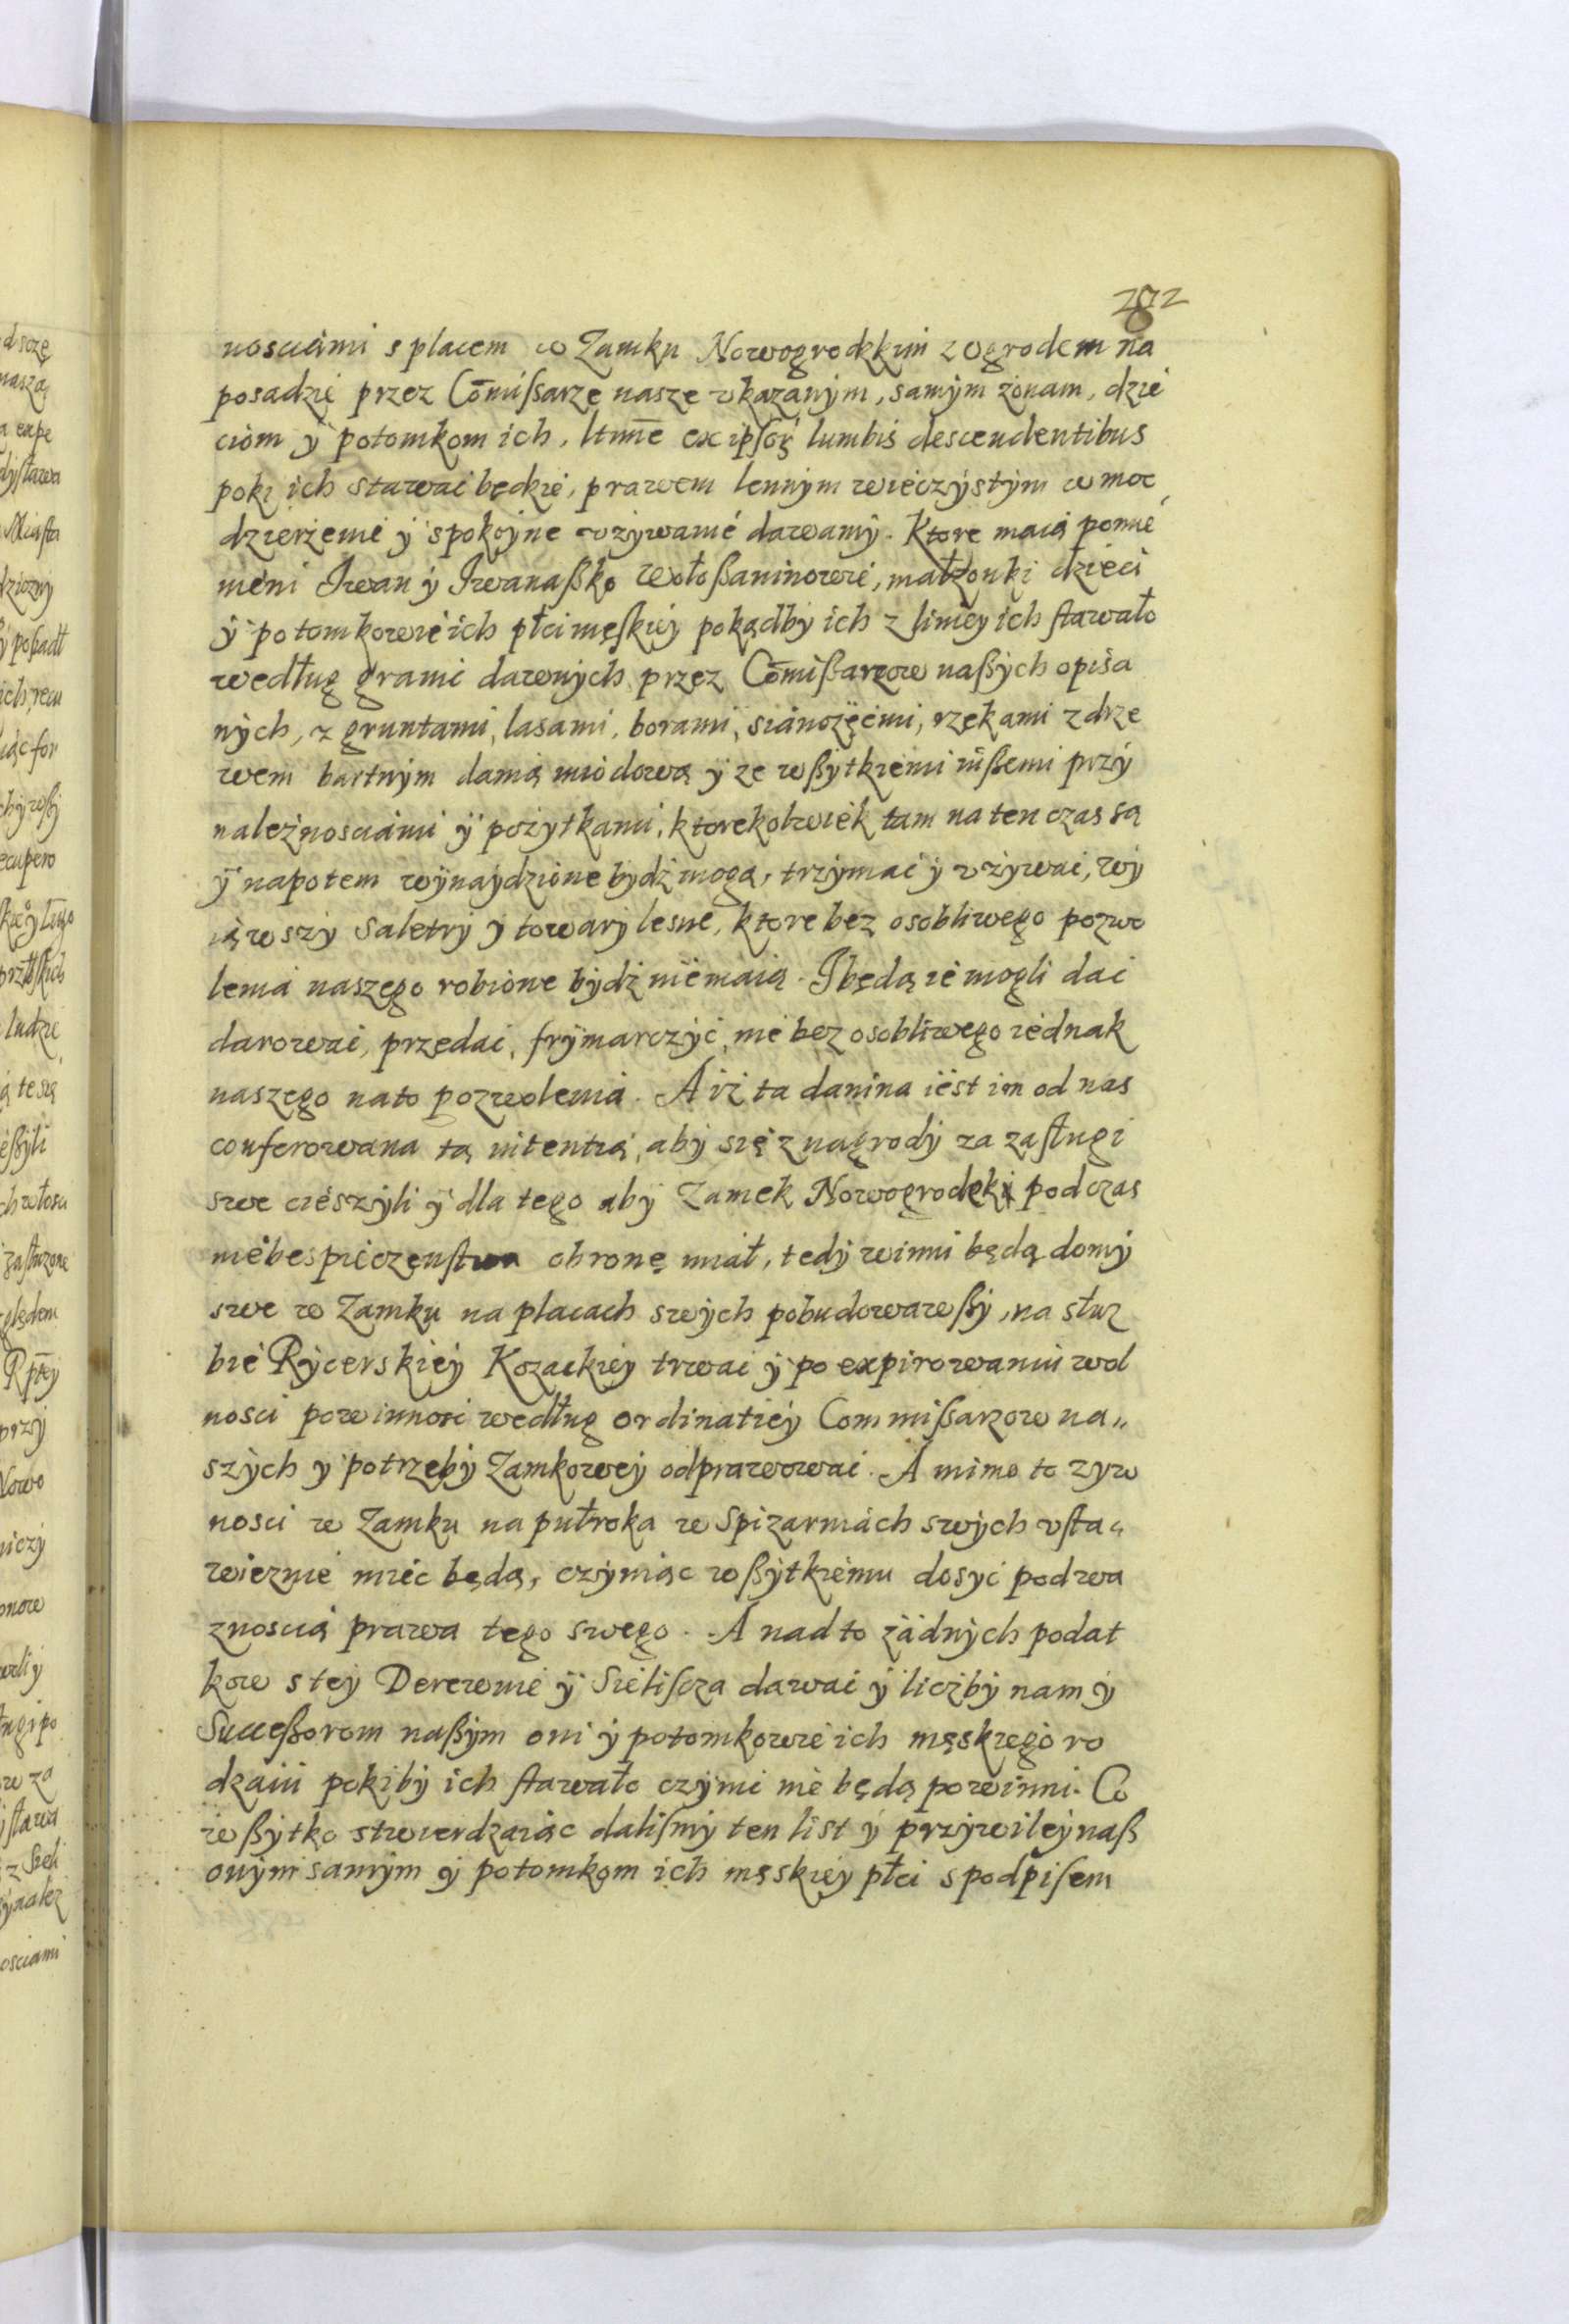 282
nosciami s placem w Zamku Nowogrodzkim z ogrodem na
posadzie przez Com̄ißarze nasze vkazanym, samym żonam, dzie
ciom y potomkom ich, ltm̄e ex ipsor̨ lumbis descendentibus
poki ich stawac będzie, prawem lennym wieczystym w moc
dzierżenie y spokoyne vżywanié dawamy. Ktore maią pomie
nieni Iwan y Iwanaßko Wołoßaninowie, małżonki dzieci
y potomkowie ich płci męskiey pokądby ich z liniey ich stawało
według granic dawnych przez Com̄ißarzow naßych opisa
nych, z gruntami, lasami, borami, sianożęćmi, rzekami z drze
wem bartnym danią miodową y ze wßytkiemi inßemi przy
należnosciami y pożytkami, ktorekolwiek tam na ten czas są
y napotem wynaydzione bydź mogą, trzymać y vżywac, wy
iąwszy saletry y towary lesne, ktore bez osobliwego pozwo
lenia naszego robione bydź niemaią. I będą ie mogli dac
darowac, przedac, frymarczyć, nie bez osobliwego iednak
naszego nato pozwolenia. A iż ta danina iest im od nas
conferowana tą intentią, aby się z nagrody za zasługi
swe cieszyli y dla tego aby Zamek Nowogrodzki podczas
niebespieczęnstwa obronę miał, tedy winni będą domy
swe w Zamku na placach swych pobudowawßy, na słuz
bie Rycerskiey Kozackiey trwac y po expirowaniu wol
nosci powinnosc według ordinatiey Commißarzow na„
szych y potrzeby Zamkowey odprawowac. A mimo to zyw
nosci w Zamku na pułroka w spizarniach swych vsta„
wicznie miec będą, czyniąc wßytkiemu dosyc pod wa
znoscią prawa tego swego. A nad to żadnych podat
kow s tey Derewnie y Sieliscza dawac y liczby nam y
Succeßorom naßym oni y potomkowie ich męskiego ro
dzaiu pokiby ich stawało czynic nie będą powinni. Co
wßytko stwierdzaiąc dalismy ten list y przywiley naß
onym samym y potomkom ich męskiey płci s podpisem